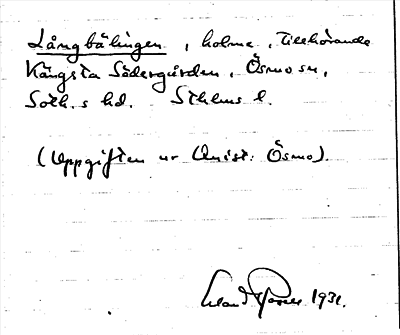 Långbälingen, holme, tillhörande
Kängsta Södergården, Ösmo sn,
Soth.s hd. Sthlms l.
(Uppgiften ur Antst: Ösmo).
1931.